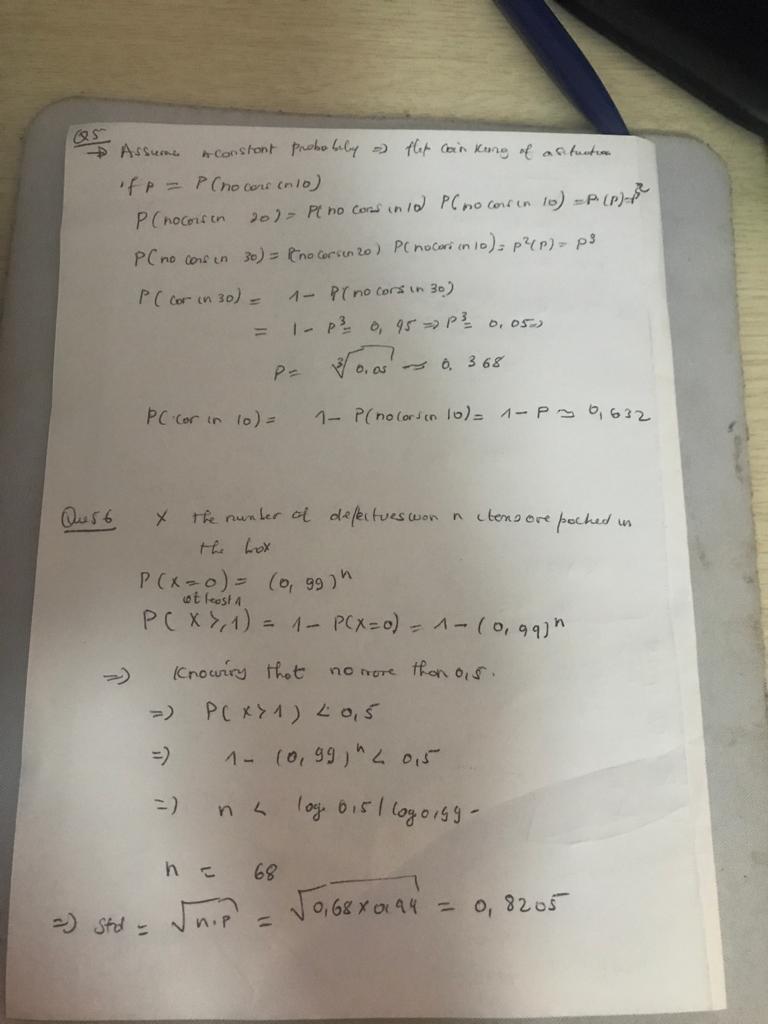 Q5
→ Assume constant probability => flip coin kind of a situation
if p = P(no cars in 10)
P(no cars in 20) = P(no cars in 10) P(no cars in 10) = P.(P)=p²
P(no cars in 30) = P(no cars in 20) P(no cars in 10) = p²(p) = p³
P(car in 30) = 1 - P(no cars in 30)
= 1 - p³ = 0,95 => p³ = 0,05 =>
p = ∛0,05 ≈ 0.368
P(car in 10) = 1 - P(no cars in 10) = 1 - p ≃ 0,632
Ques6 X the number of defectives n items are packed in
the box
P(x=0) = (0,99)ⁿ
at least 1
P(X ⩾ 1) = 1 - P(X=0) = 1 - (0,99)ⁿ
=> Knowing that no more than 0,5.
=> P(X > 1) < 0,5
=> 1 - (0,99)ⁿ < 0,5
=> n < log 0,5 / log 0,99 -
n = 68
=> Std = √n.p = √0,68 x 0,99 = 0,8205